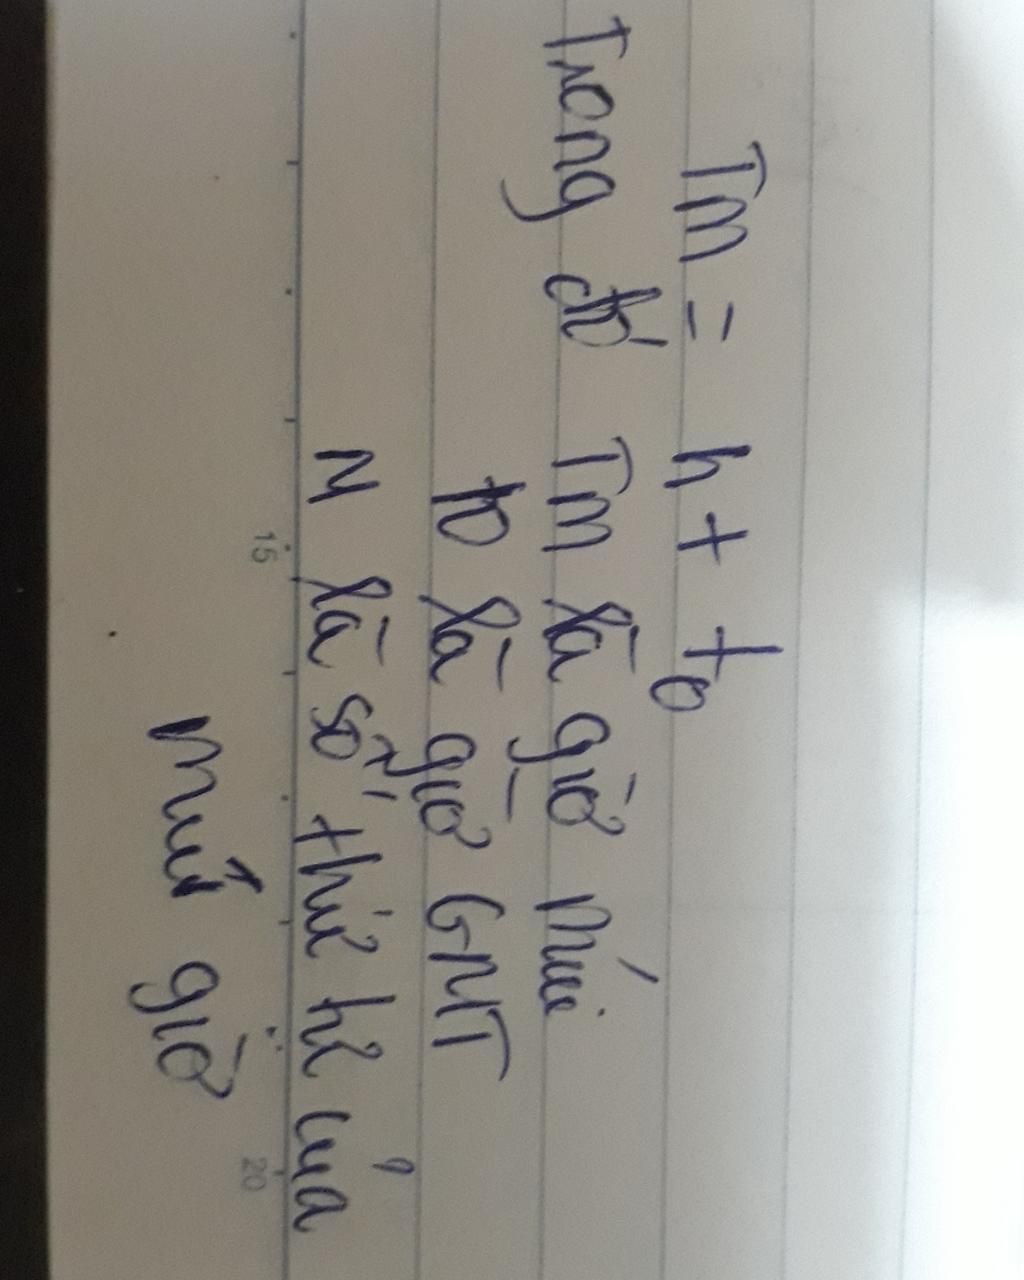 Tm = h + to
Trong đó Tm là giờ múi
to là giờ GMT
M là số thứ tự của
múi giờ
15
20